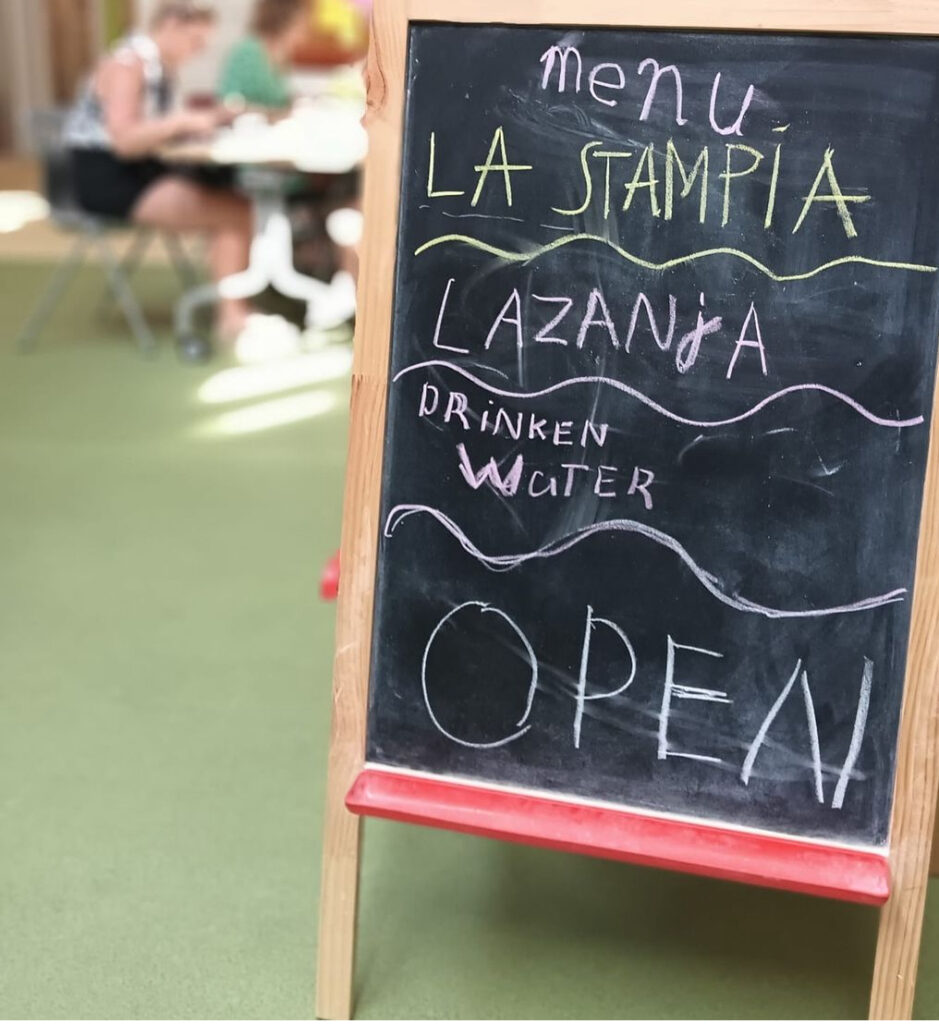 menu
LA STAMPiA
LAZANjA
DRiNKEN
WaTER
OPEN